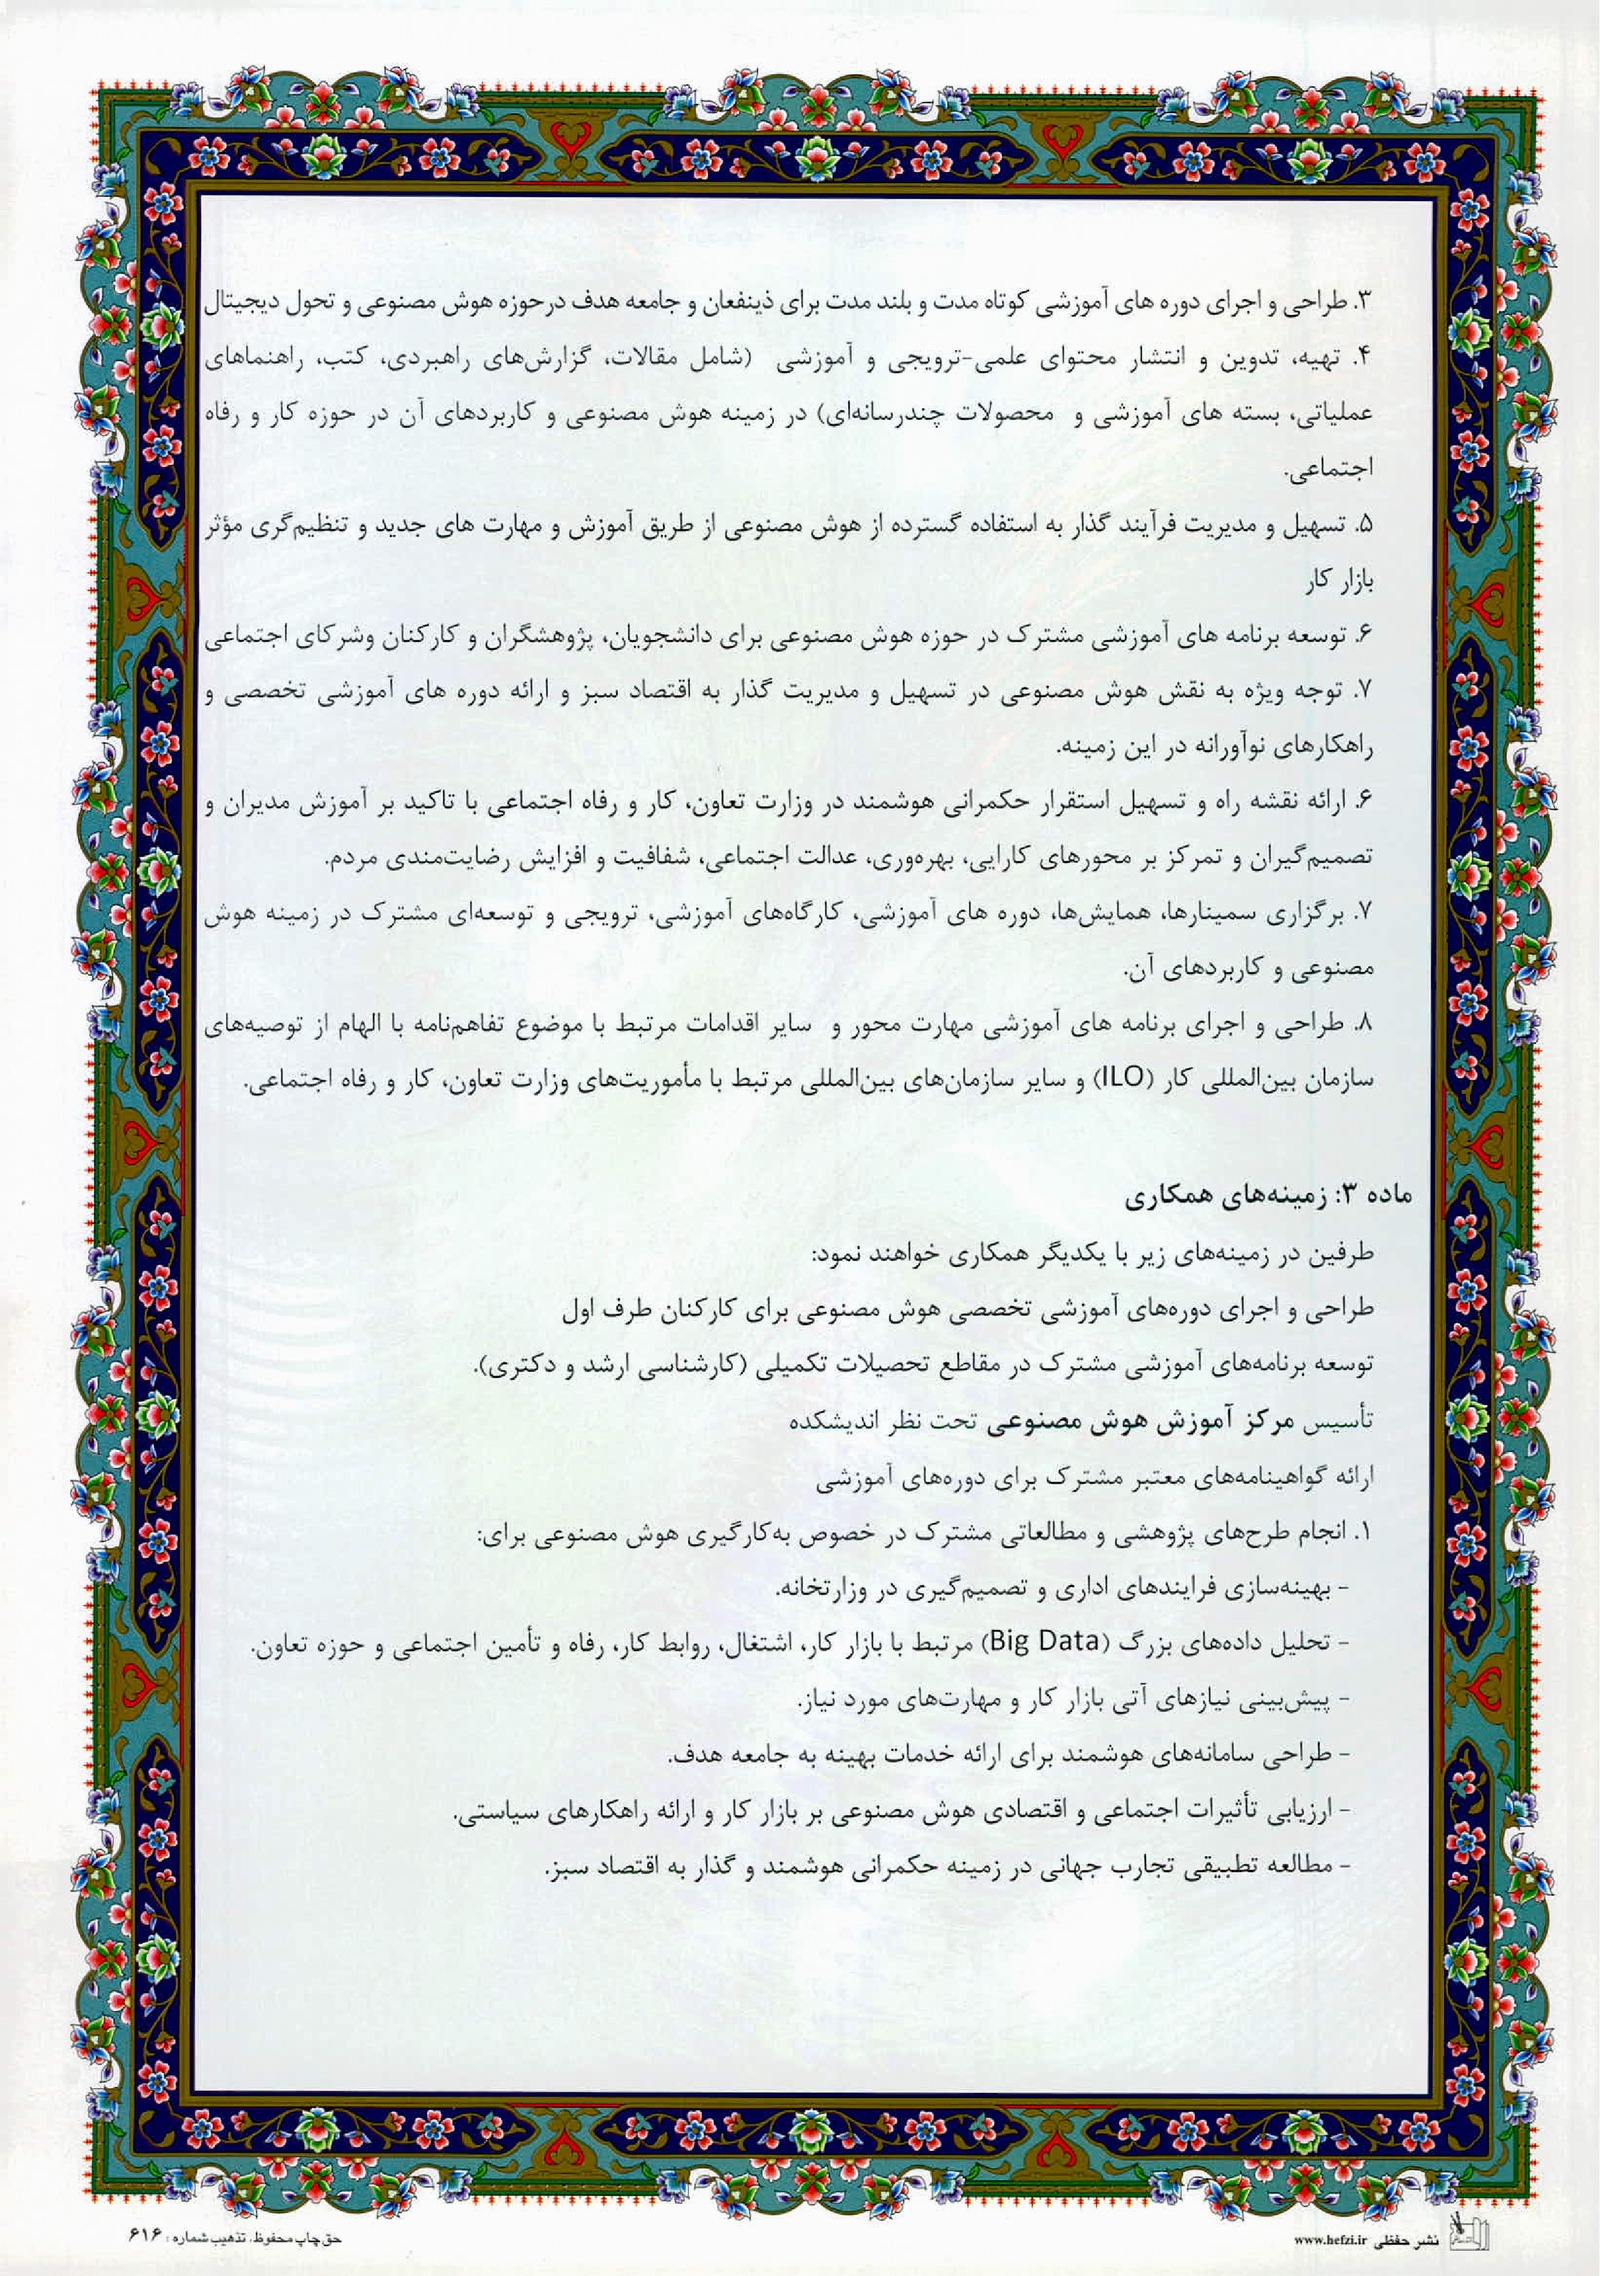 ۳. طراحی و اجرای دوره های آموزشی کوتاه مدت و بلند مدت برای ذینفعان و جامعه هدف درحوزه هوش مصنوعی و تحول دیجیتال
۴. تهیه، تدوین و انتشار محتوای علمی-ترویجی و آموزشی (شامل مقالات، گزارش‌های راهبردی، کتب، راهنماهای
عملیاتی، بسته های آموزشی و محصولات چندرسانه‌ای) در زمینه هوش مصنوعی و کاربردهای آن در حوزه کار و رفاه
اجتماعی.
۵. تسهیل و مدیریت فرآیند گذار به استفاده گسترده از هوش مصنوعی از طریق آموزش و مهارت های جدید و تنظیم‌گری مؤثر
بازار کار
۶. توسعه برنامه های آموزشی مشترک در حوزه هوش مصنوعی برای دانشجویان، پژوهشگران و کارکنان وشرکای اجتماعی
۷. توجه ویژه به نقش هوش مصنوعی در تسهیل و مدیریت گذار به اقتصاد سبز و ارائه دوره های آموزشی تخصصی و
راهکارهای نوآورانه در این زمینه.
۶. ارائه نقشه راه و تسهیل استقرار حکمرانی هوشمند در وزارت تعاون، کار و رفاه اجتماعی با تاکید بر آموزش مدیران و
تصمیم‌گیران و تمرکز بر محورهای کارایی، بهره‌وری، عدالت اجتماعی، شفافیت و افزایش رضایت‌مندی مردم.
۷. برگزاری سمینارها، همایش‌ها، دوره های آموزشی، کارگاه‌های آموزشی، ترویجی و توسعه‌ای مشترک در زمینه هوش
مصنوعی و کاربردهای آن.
۸. طراحی و اجرای برنامه های آموزشی مهارت محور و سایر اقدامات مرتبط با موضوع تفاهم‌نامه با الهام از توصیه‌های
سازمان بین‌المللی کار (ILO) و سایر سازمان‌های بین‌المللی مرتبط با مأموریت‌های وزارت تعاون، کار و رفاه اجتماعی.
ماده ۳: زمینه‌های همکاری
طرفین در زمینه‌های زیر با یکدیگر همکاری خواهند نمود:
طراحی و اجرای دوره‌های آموزشی تخصصی هوش مصنوعی برای کارکنان طرف اول
توسعه برنامه‌های آموزشی مشترک در مقاطع تحصیلات تکمیلی (کارشناسی ارشد و دکتری).
تأسیس مرکز آموزش هوش مصنوعی تحت نظر اندیشکده
ارائه گواهینامه‌های معتبر مشترک برای دوره‌های آموزشی
۱. انجام طرح‌های پژوهشی و مطالعاتی مشترک در خصوص به‌کارگیری هوش مصنوعی برای:
- بهینه‌سازی فرایندهای اداری و تصمیم‌گیری در وزارتخانه.
- تحلیل داده‌های بزرگ (Big Data) مرتبط با بازار کار، اشتغال، روابط کار، رفاه و تأمین اجتماعی و حوزه تعاون.
- پیش‌بینی نیازهای آتی بازار کار و مهارت‌های مورد نیاز.
- طراحی سامانه‌های هوشمند برای ارائه خدمات بهینه به جامعه هدف.
- ارزیابی تأثیرات اجتماعی و اقتصادی هوش مصنوعی بر بازار کار و ارائه راهکارهای سیاستی.
- مطالعه تطبیقی تجارب جهانی در زمینه حکمرانی هوشمند و گذار به اقتصاد سبز.
نشر حفظی www.hefzi.ir
حق چاپ محفوظ، تذهیب شماره: ۶۱۶